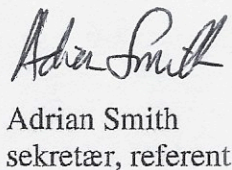 Adrian Smith
Adrian Smith
sekretær, referent